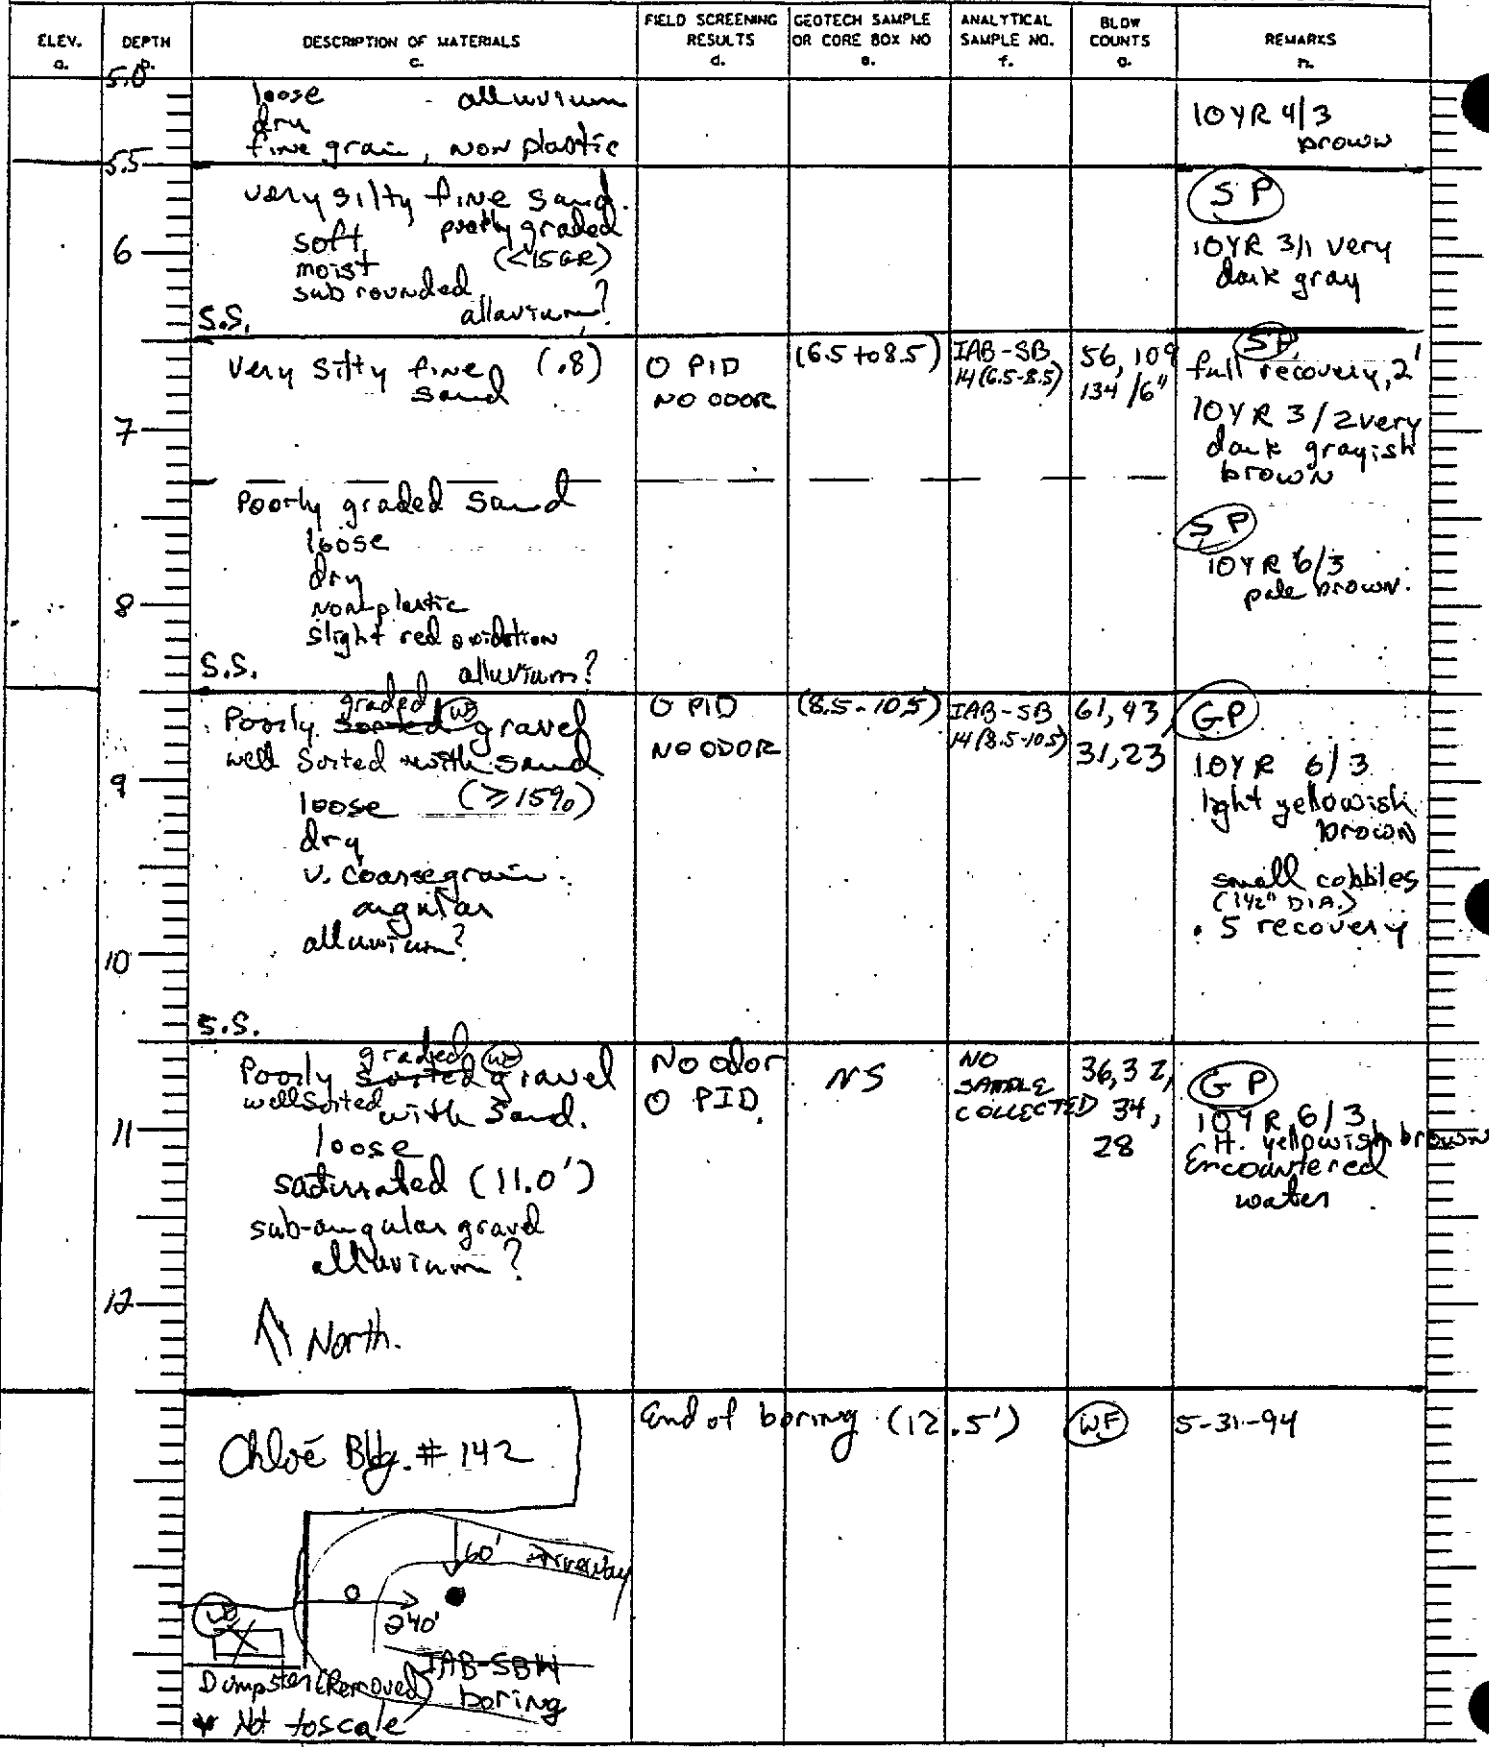 ELEV.
a.
DEPTH
b.
DESCRIPTION OF MATERIALS
c.
FIELD SCREENING
RESULTS
d.
GEOTECH SAMPLE
OR CORE BOX NO
e.
ANALYTICAL
SAMPLE NO.
f.
BLOW
COUNTS
g.
REMARKS
h.
5.0
loose alluvium
dry
fine grain, non plastic
10YR 4/3
brown
5.5
very silty fine sand.
soft, poorly graded
6
moist (<15GR)
sub rounded
alluvium?
S.S.
SP
10YR 3/1 very
dark gray
very silty fine (.8)
sand
O PID
NO ODOR
(6.5 to 8.5)
IAB-SB
14(6.5-8.5)
56, 109
134/6"
SP
full recovery, 2'
10YR 3/2 very
dark grayish
brown
7
Poorly graded sand
loose
dry
non-plastic
8
slight red oxidation
alluvium?
S.S.
SP
10YR 6/3
pale brown.
graded WF
Poorly sorted gravel
well sorted with sand
loose (≥15%)
dry
v. coarse grain
angular
alluvium?
S.S.
O PID
NO ODOR
(8.5-10.5)
IAB-SB
14(8.5-10.5)
61, 43,
31, 23
GP
10YR 6/3
light yellowish
brown
small cobbles
(1 1/2" DIA.)
.5 recovery
9
10
graded WF
Poorly sorted gravel
well sorted with sand.
loose
saturated (11.0')
sub-angular gravel
alluvium?
No odor
O PID
NS
NO
SAMPLE
COLLECTED
36, 32,
34,
28
GP
10YR 6/3
lt. yellowish brown
Encountered
water
11
12
North.
End of boring (12.5')
WF
5-31-94
Chloé Bldg. # 142
60'
Driveway
240'
WF
IAB-SB14
boring
Dumpster (Removed)
* Not to scale